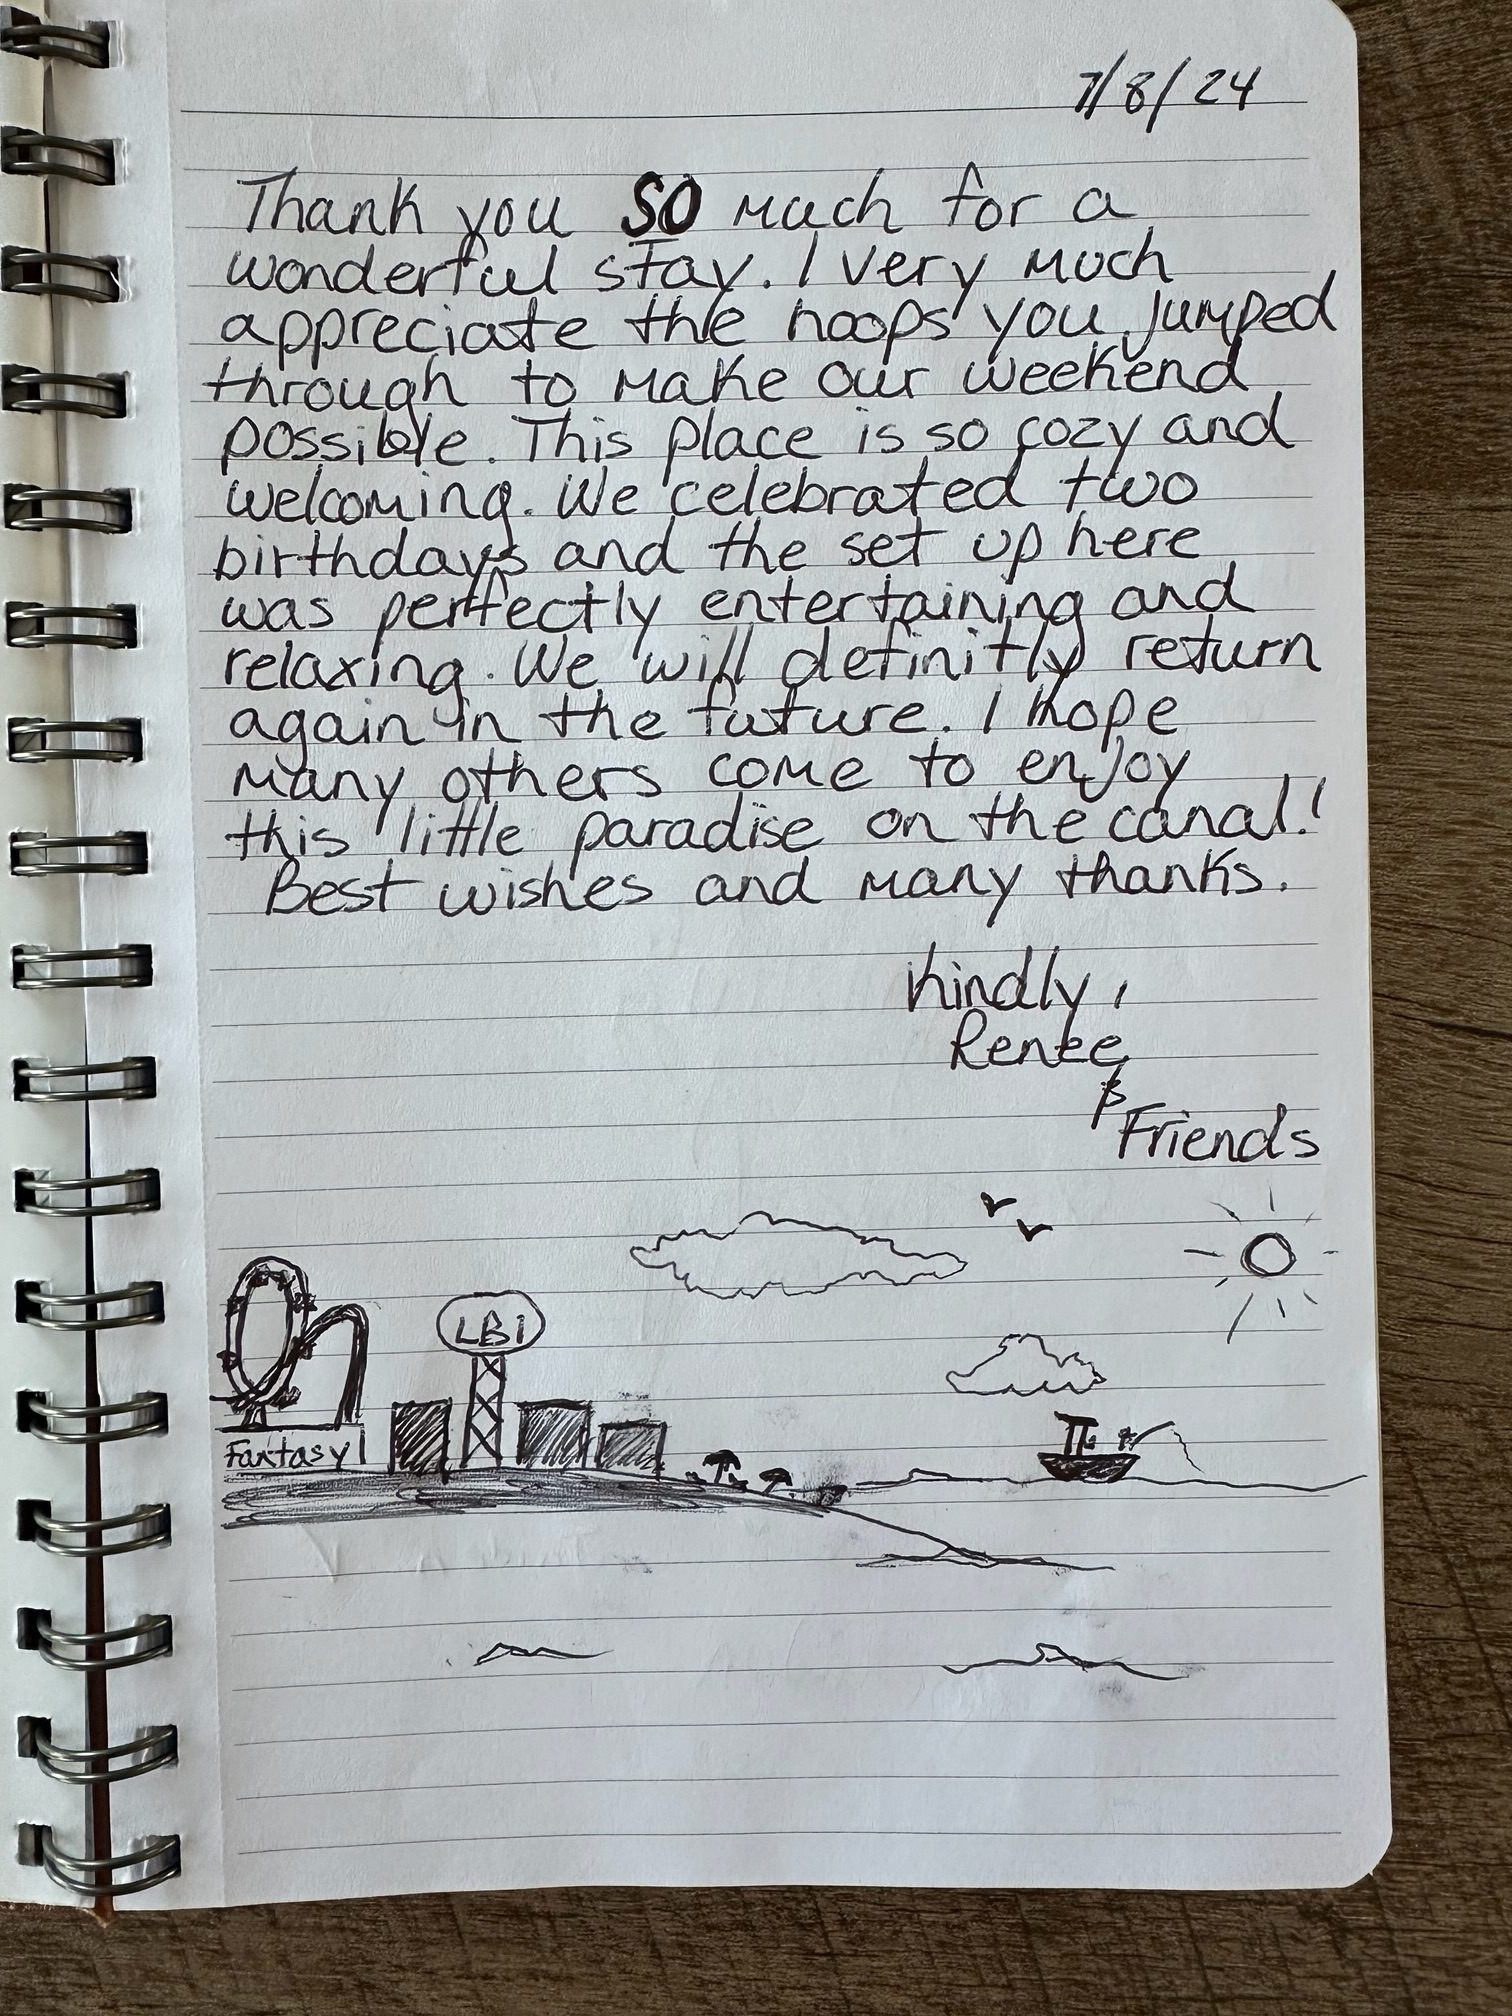 7/8/24
Thank you SO much for a
wonderful stay. I very much
appreciate the hoops you jumped
through to make our weekend
possible. This place is so cozy and
welcoming. We celebrated two
birthdays and the set up here
was perfectly entertaining and
relaxing. We will definitly return
again in the future. I hope
many others come to enjoy
this little paradise on the canal!
Best wishes and many thanks.
Kindly,
Renee
&
Friends
LBI
Fantasy